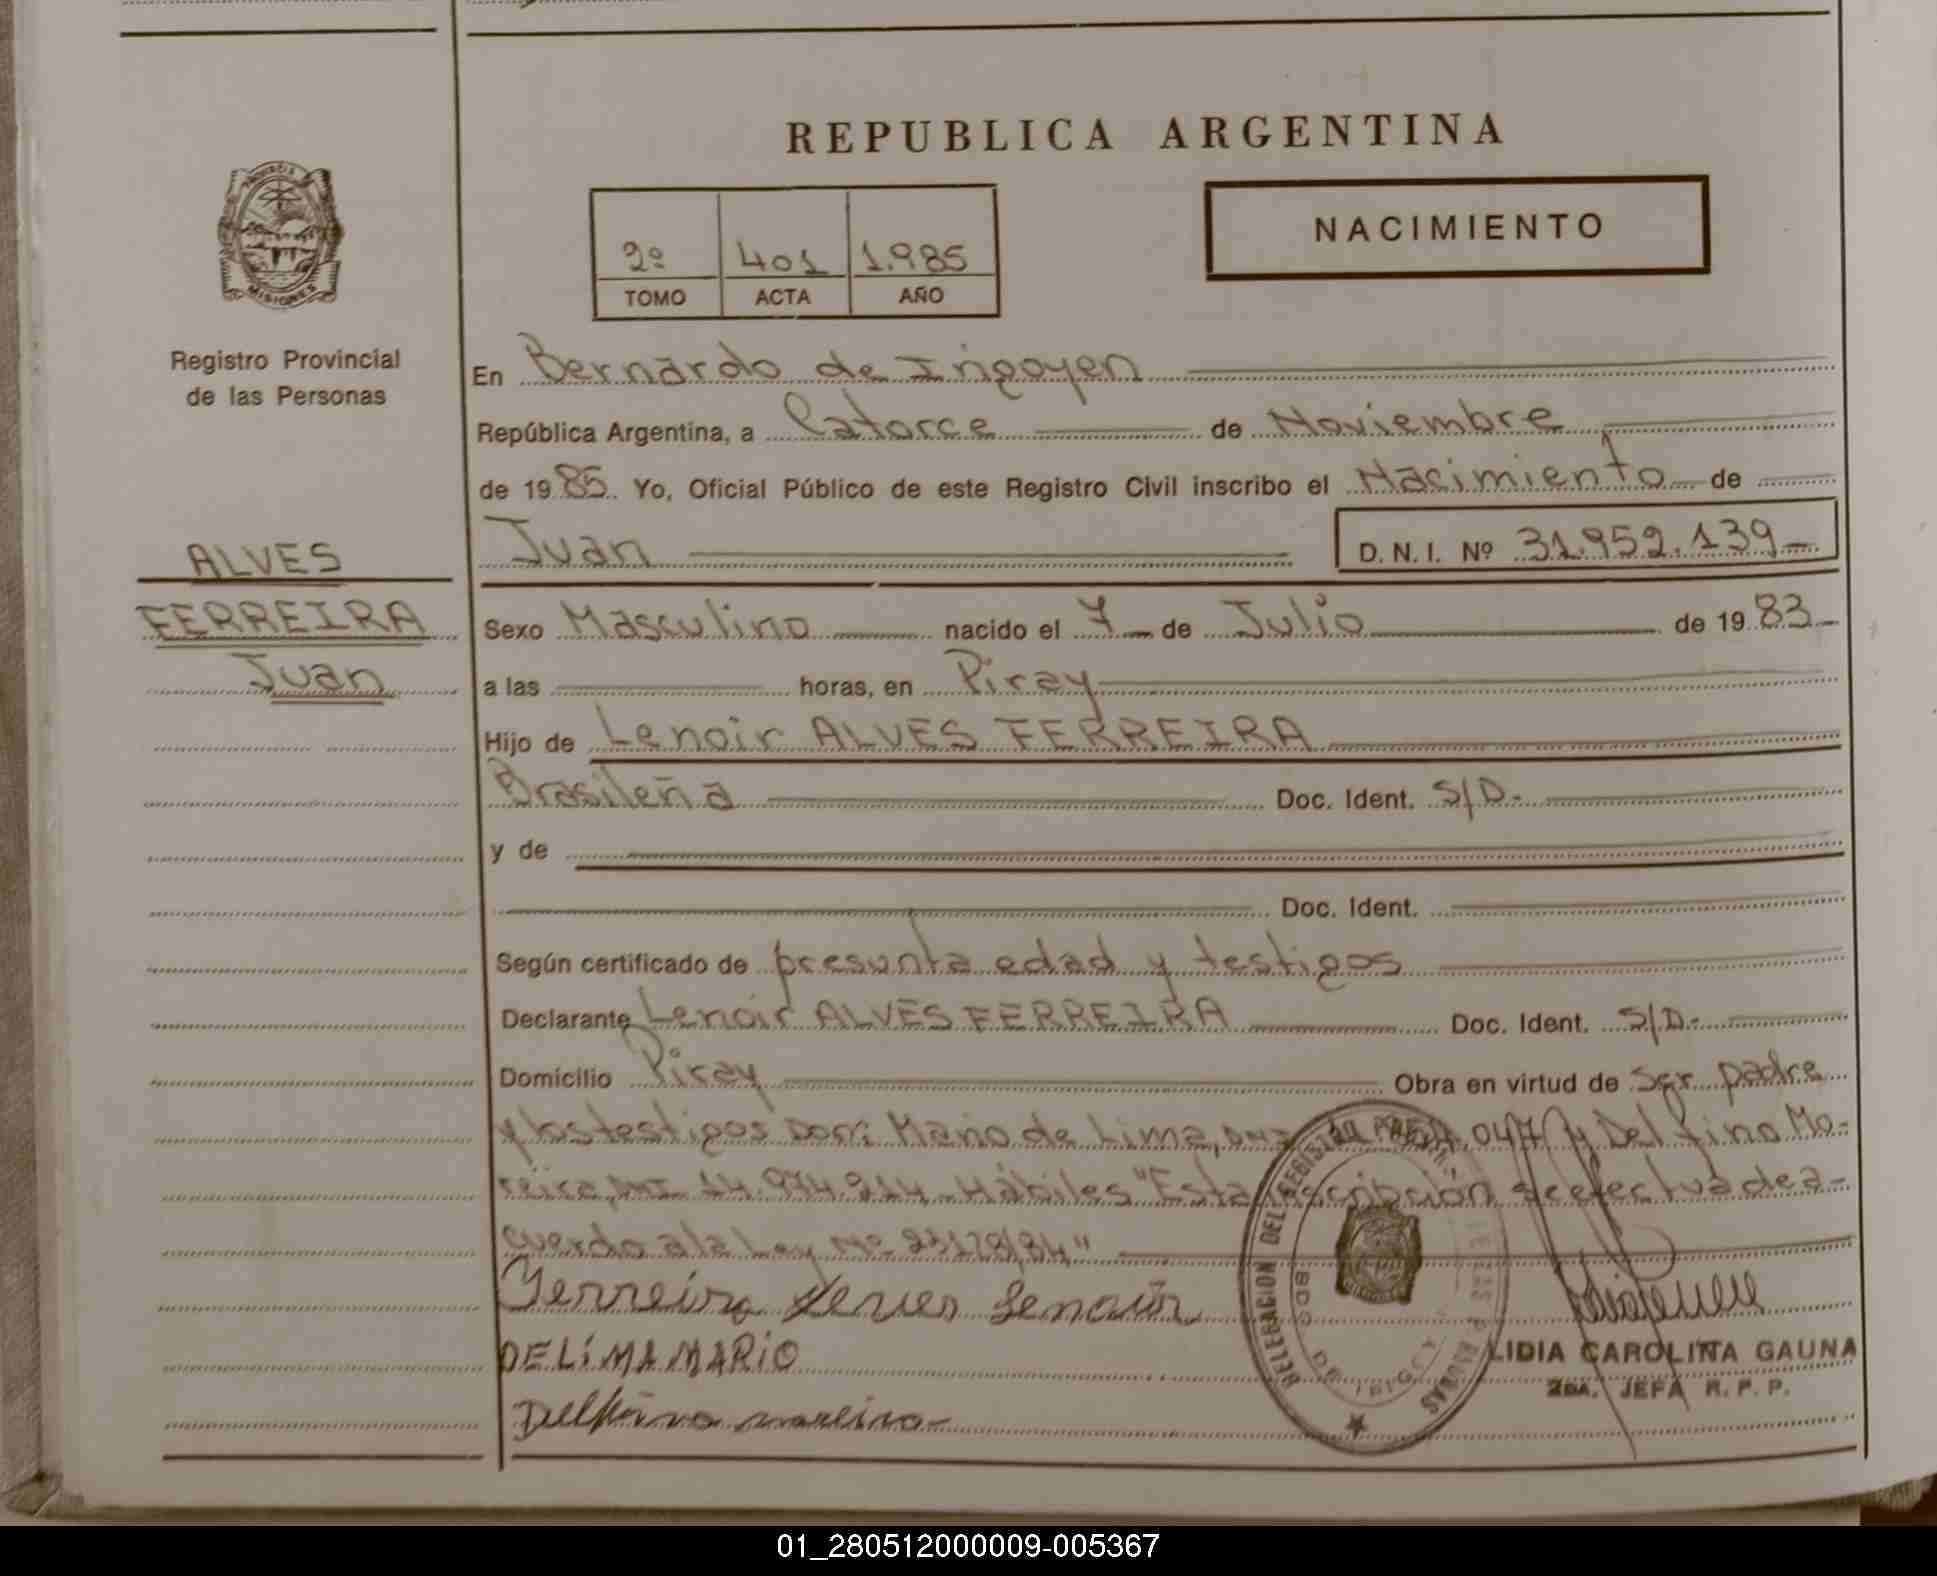 REPUBLICA ARGENTINA
NACIMIENTO
2º 401 1.985
TOMO ACTA AÑO
PROVINCIA
MISIONES
Registro Provincial
de las Personas
ALVES
FERREIRA
Juan
En Bernardo de Irigoyen
República Argentina, a Catorce de Noviembre
de 1985. Yo, Oficial Público de este Registro Civil inscribo el Nacimiento de
Juan D. N. I. Nº 31.952.139
Sexo Masculino nacido el 7 de Julio de 1983
a las horas, en Piray
Hijo de Lenoir ALVES FERREIRA
Brasileña Doc. Ident. S/D.
y de
Doc. Ident.
Según certificado de presunta edad y testigos
Declarante Lenoir ALVES FERREIRA Doc. Ident. S/D.
Domicilio Piray Obra en virtud de ser padre
y los testigos Don: Mario de Lima, 047 y Delfino Mo-
reira, 14.974.914 Hábiles "Esta inscripción se efectua de a-
cuerdo a la Ley Nº 23128/84"
Ferreira Alves Lenoir
DE LiMA MARiO
Delfino moreira
DELEGACION DEL REGISTRO
BDO. DE IRIGOYEN
LIDIA CAROLINA GAUNA
2DA. JEFA R. P. P.
01_280512000009-005367